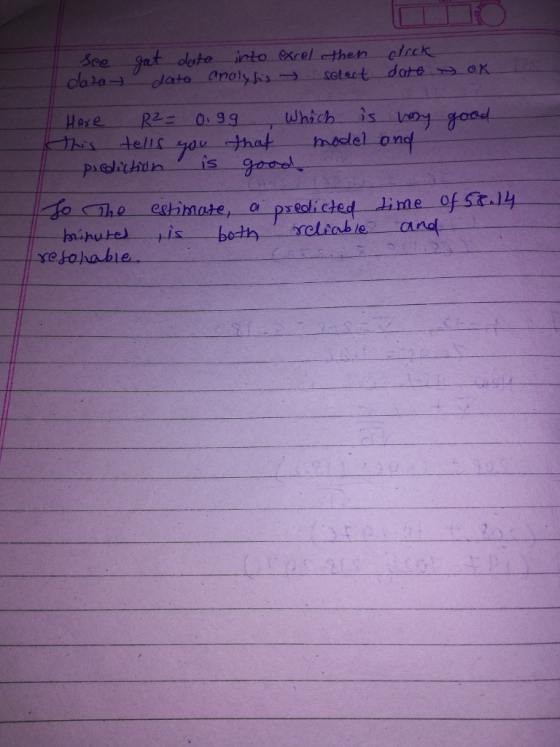 See gat data into excel then click
data → data analysis → select date → OK
Here R² = 0.99, Which is very good
This tells you that model and
prediction is good.
So The estimate, a predicted time of 58.14
minutes, is both reliable and
resonable.